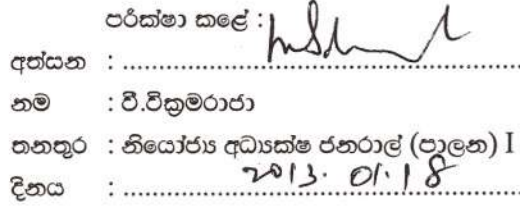 පරීක්ෂා කළේ :
අත්සන : ........................................................
නම : වී.වික්‍රමරාජා
තනතුර : නියෝජ්‍ය අධ්‍යක්ෂ ජනරාල් (පාලන) I
දිනය : ........2013. 01. 18........